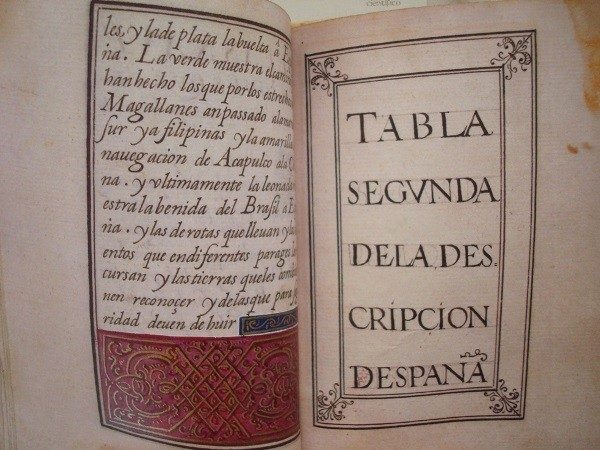 científico
les, y la de plata la buelta à E
ña. La verde muestra el cami
han hecho los que por los estrechos
Magallanes an passado ala mar
sur ya filipinas y la amarilla
nauegacion de Acapulco ala
na. y vltimamente la leonada
estra la benida del Brasil a E
ña. y las derotas que lleuan y
entos que en diferentes parages
cursan y las tierras queles
nen reconoçer y delas que para
ridad deuen de huir
TABLA
SEGVNDA
DE LA DES
CRIPCION
DESPAÑA